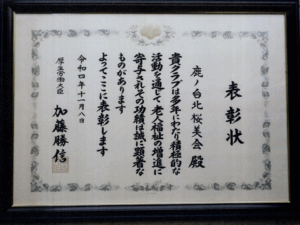 表彰状
鹿ノ台北桜美会 殿
貴クラブは多年にわたり積極的な
活動を通じて老人福祉の増進に
寄与されその功績は誠に顕著な
ものがあります
よってここに表彰します
令和四年十一月八日
厚生労働大臣
加藤勝信